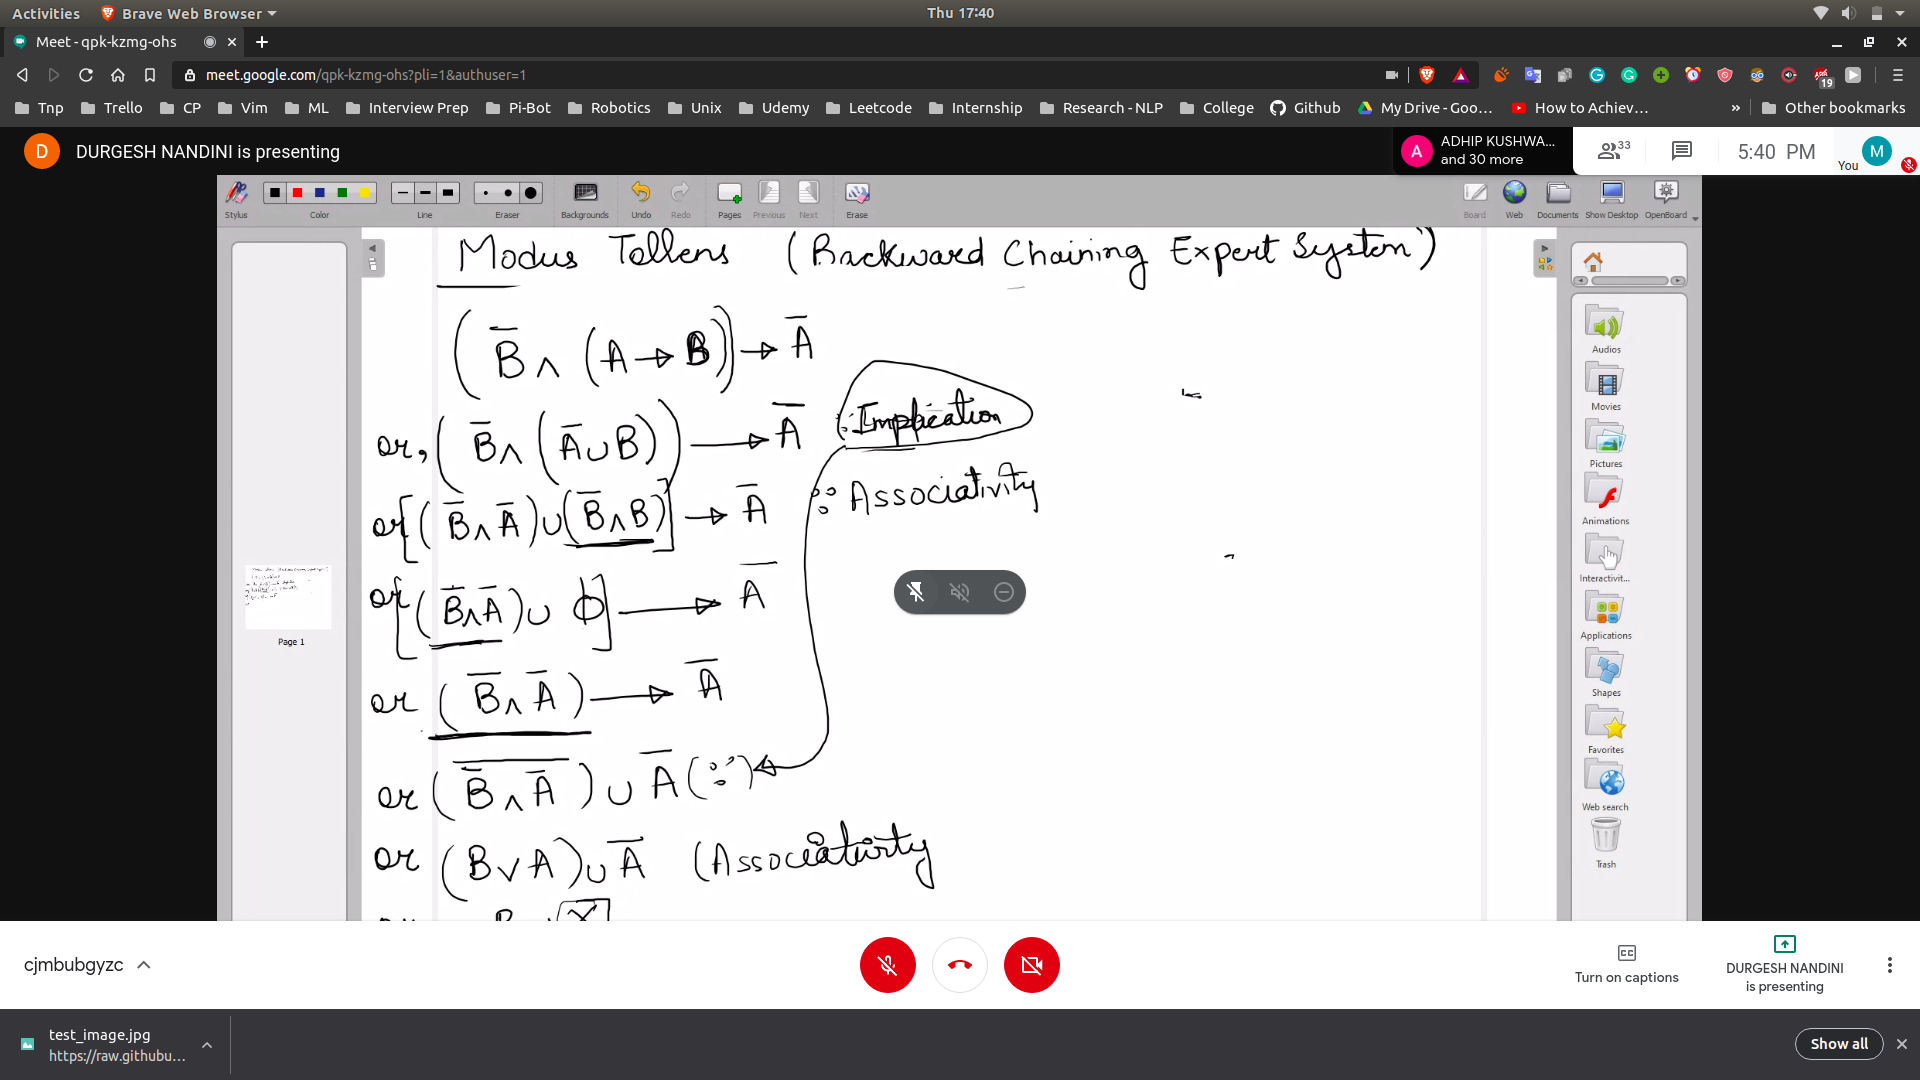 Activities Brave Web Browser Thu 17:40
Meet - qpk-kzmg-ohs
meet.google.com/qpk-kzmg-ohs?pli=1&authuser=1
19
Tnp Trello CP Vim ML Interview Prep Pi-Bot Robotics Unix Udemy Leetcode Internship Research - NLP College Github My Drive - Goo... How to Achiev... » Other bookmarks
D DURGESH NANDINI is presenting
A ADHIP KUSHWA... and 30 more
33
5:40 PM
You M
Stylus Color Line Eraser Backgrounds Undo Redo Pages Previous Next Erase Board Web Documents Show Desktop OpenBoard
Modus Tollens (Backward Chaining Expert System)
(B̅ ∧ (A → B)) → A̅
or, (B̅ ∧ (A̅ ∪ B)) → A̅ ∵ Implication
or [(B̅ ∧ A̅) ∪ (B̅ ∧ B)] → A̅ ∵ Associativity
or [(B̅ ∧ A̅) ∪ ϕ] → A̅
or (B̅ ∧ A̅) → A̅
or (\overline{B̅ ∧ A̅}) ∪ A̅ (∵)
or (B ∨ A) ∪ A̅ (Associativity
Page 1
Audios
Movies
Pictures
Animations
Interactivit...
Applications
Shapes
Favorites
Web search
Trash
cjmbubgyzc
Turn on captions
DURGESH NANDINI
is presenting
test_image.jpg
https://raw.githubu...
Show all